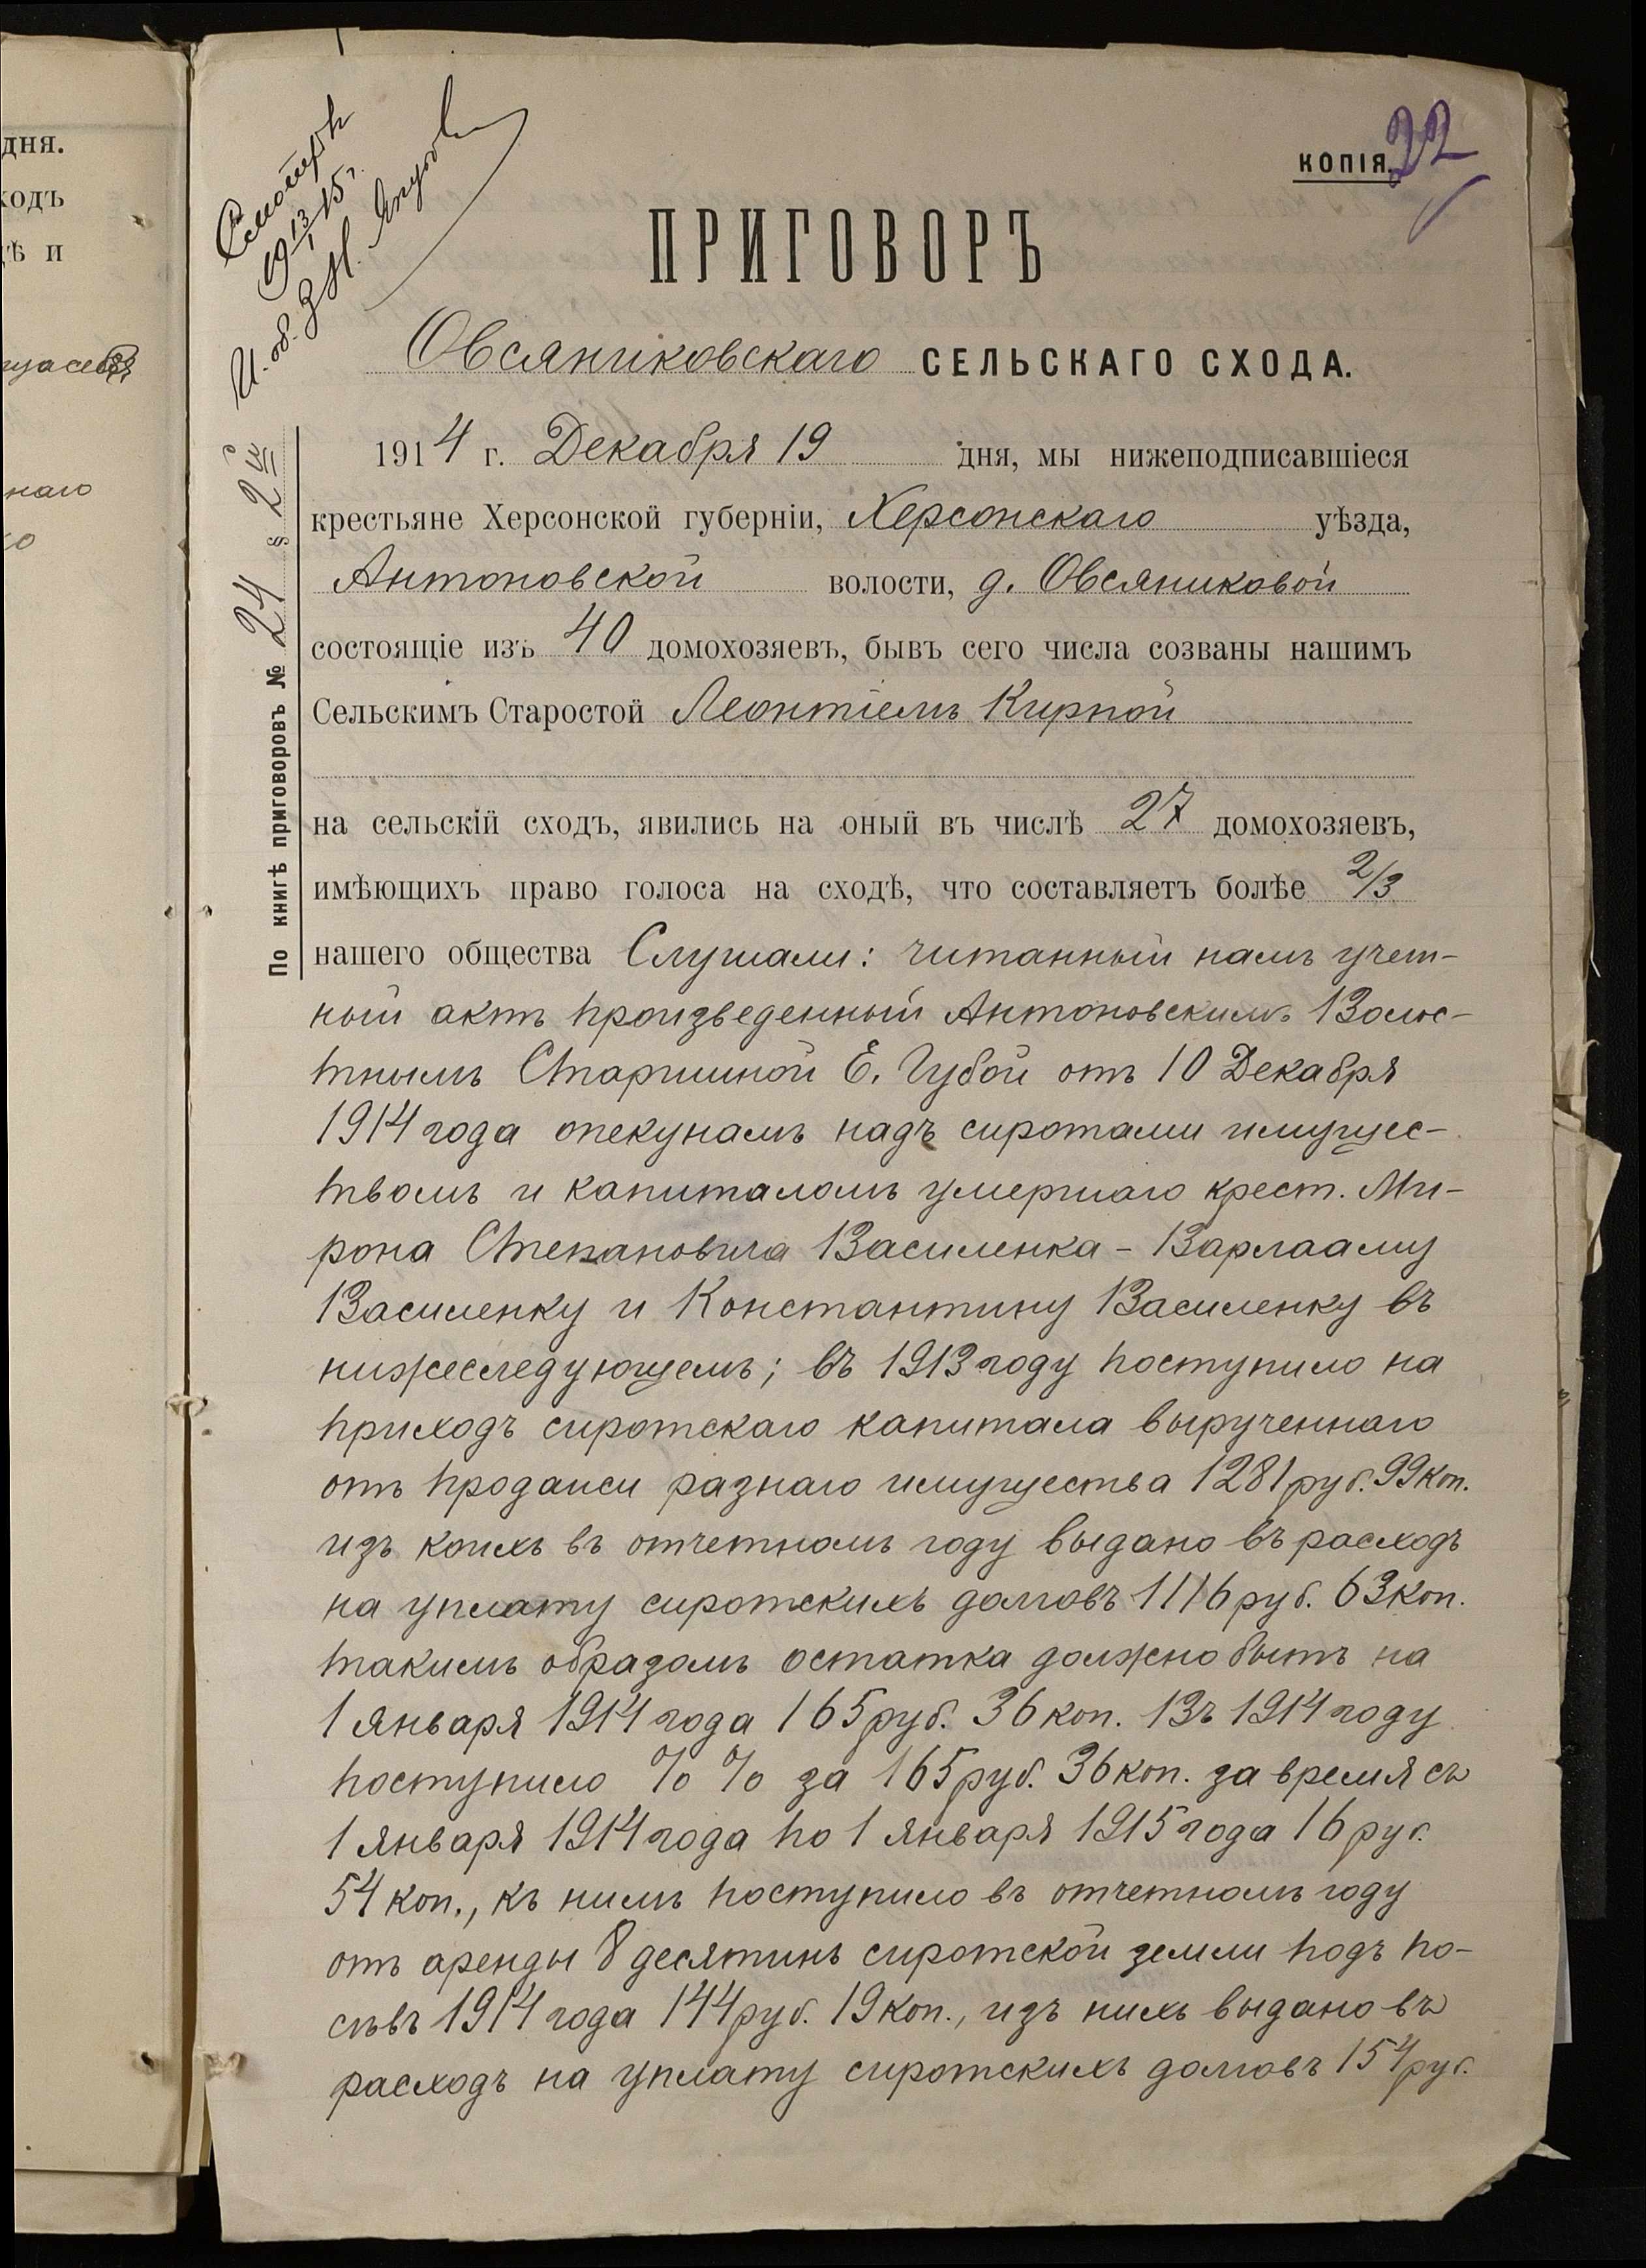 дня.
ходъ
ѣ и
наго
Смотрѣлъ
19 13/I 15 г.
И. об. З.Н.
КОПІЯ.
22
ПРИГОВОРЪ
Овсяниковскаго СЕЛЬСКАГО СХОДА.
По книгѣ приговоровъ № 24 § 2й
1914 г. Декабря 19 дня, мы нижеподписавшіеся
крестьяне Херсонской губерніи, Херсонскаго уѣзда,
Антоновской волости, д. Овсяниковой
состоящіе изъ 40 домохозяевъ, бывъ сего числа созваны нашимъ
Сельскимъ Старостой Леонтіемъ Кирпой
на сельскій сходъ, явились на оный въ числѣ 27 домохозяевъ,
имѣющихъ право голоса на сходѣ, что составляетъ болѣе 2/3
нашего общества Слушали: читанный намъ учет-
ный актъ произведенный Антоновскимъ Волос-
тнымъ Старшиной Е. Губой отъ 10 Декабря
1914 года опекунамъ надъ сиротами имущес-
твомъ и капиталомъ умершаго крест. Ми-
рона Степановича Василенка - Варлааму
Василенку и Константину Василенку въ
нижеследующемъ; въ 1913 году поступило на
приходъ сиротскаго капитала вырученнаго
отъ продажи разнаго имущества 1281 руб. 99 коп.
изъ коихъ въ отчетномъ году выдано въ расходъ
на уплату сиротскихъ долговъ 1116 руб. 63 коп.
такимъ образомъ остатка должно быть на
1 января 1914 года 165 руб. 36 коп. Въ 1914 году
поступило %% за 165 руб. 36 коп. за время съ
1 января 1914 года по 1 января 1915 года 16 руб.
54 коп., къ нимъ поступило въ отчетномъ году
отъ аренды 8 десятинъ сиротской земли подъ по-
сѣвъ 1914 года 144 руб. 19 коп., изъ нихъ выдано въ
расходъ на уплату сиротскихъ долговъ 154 руб.